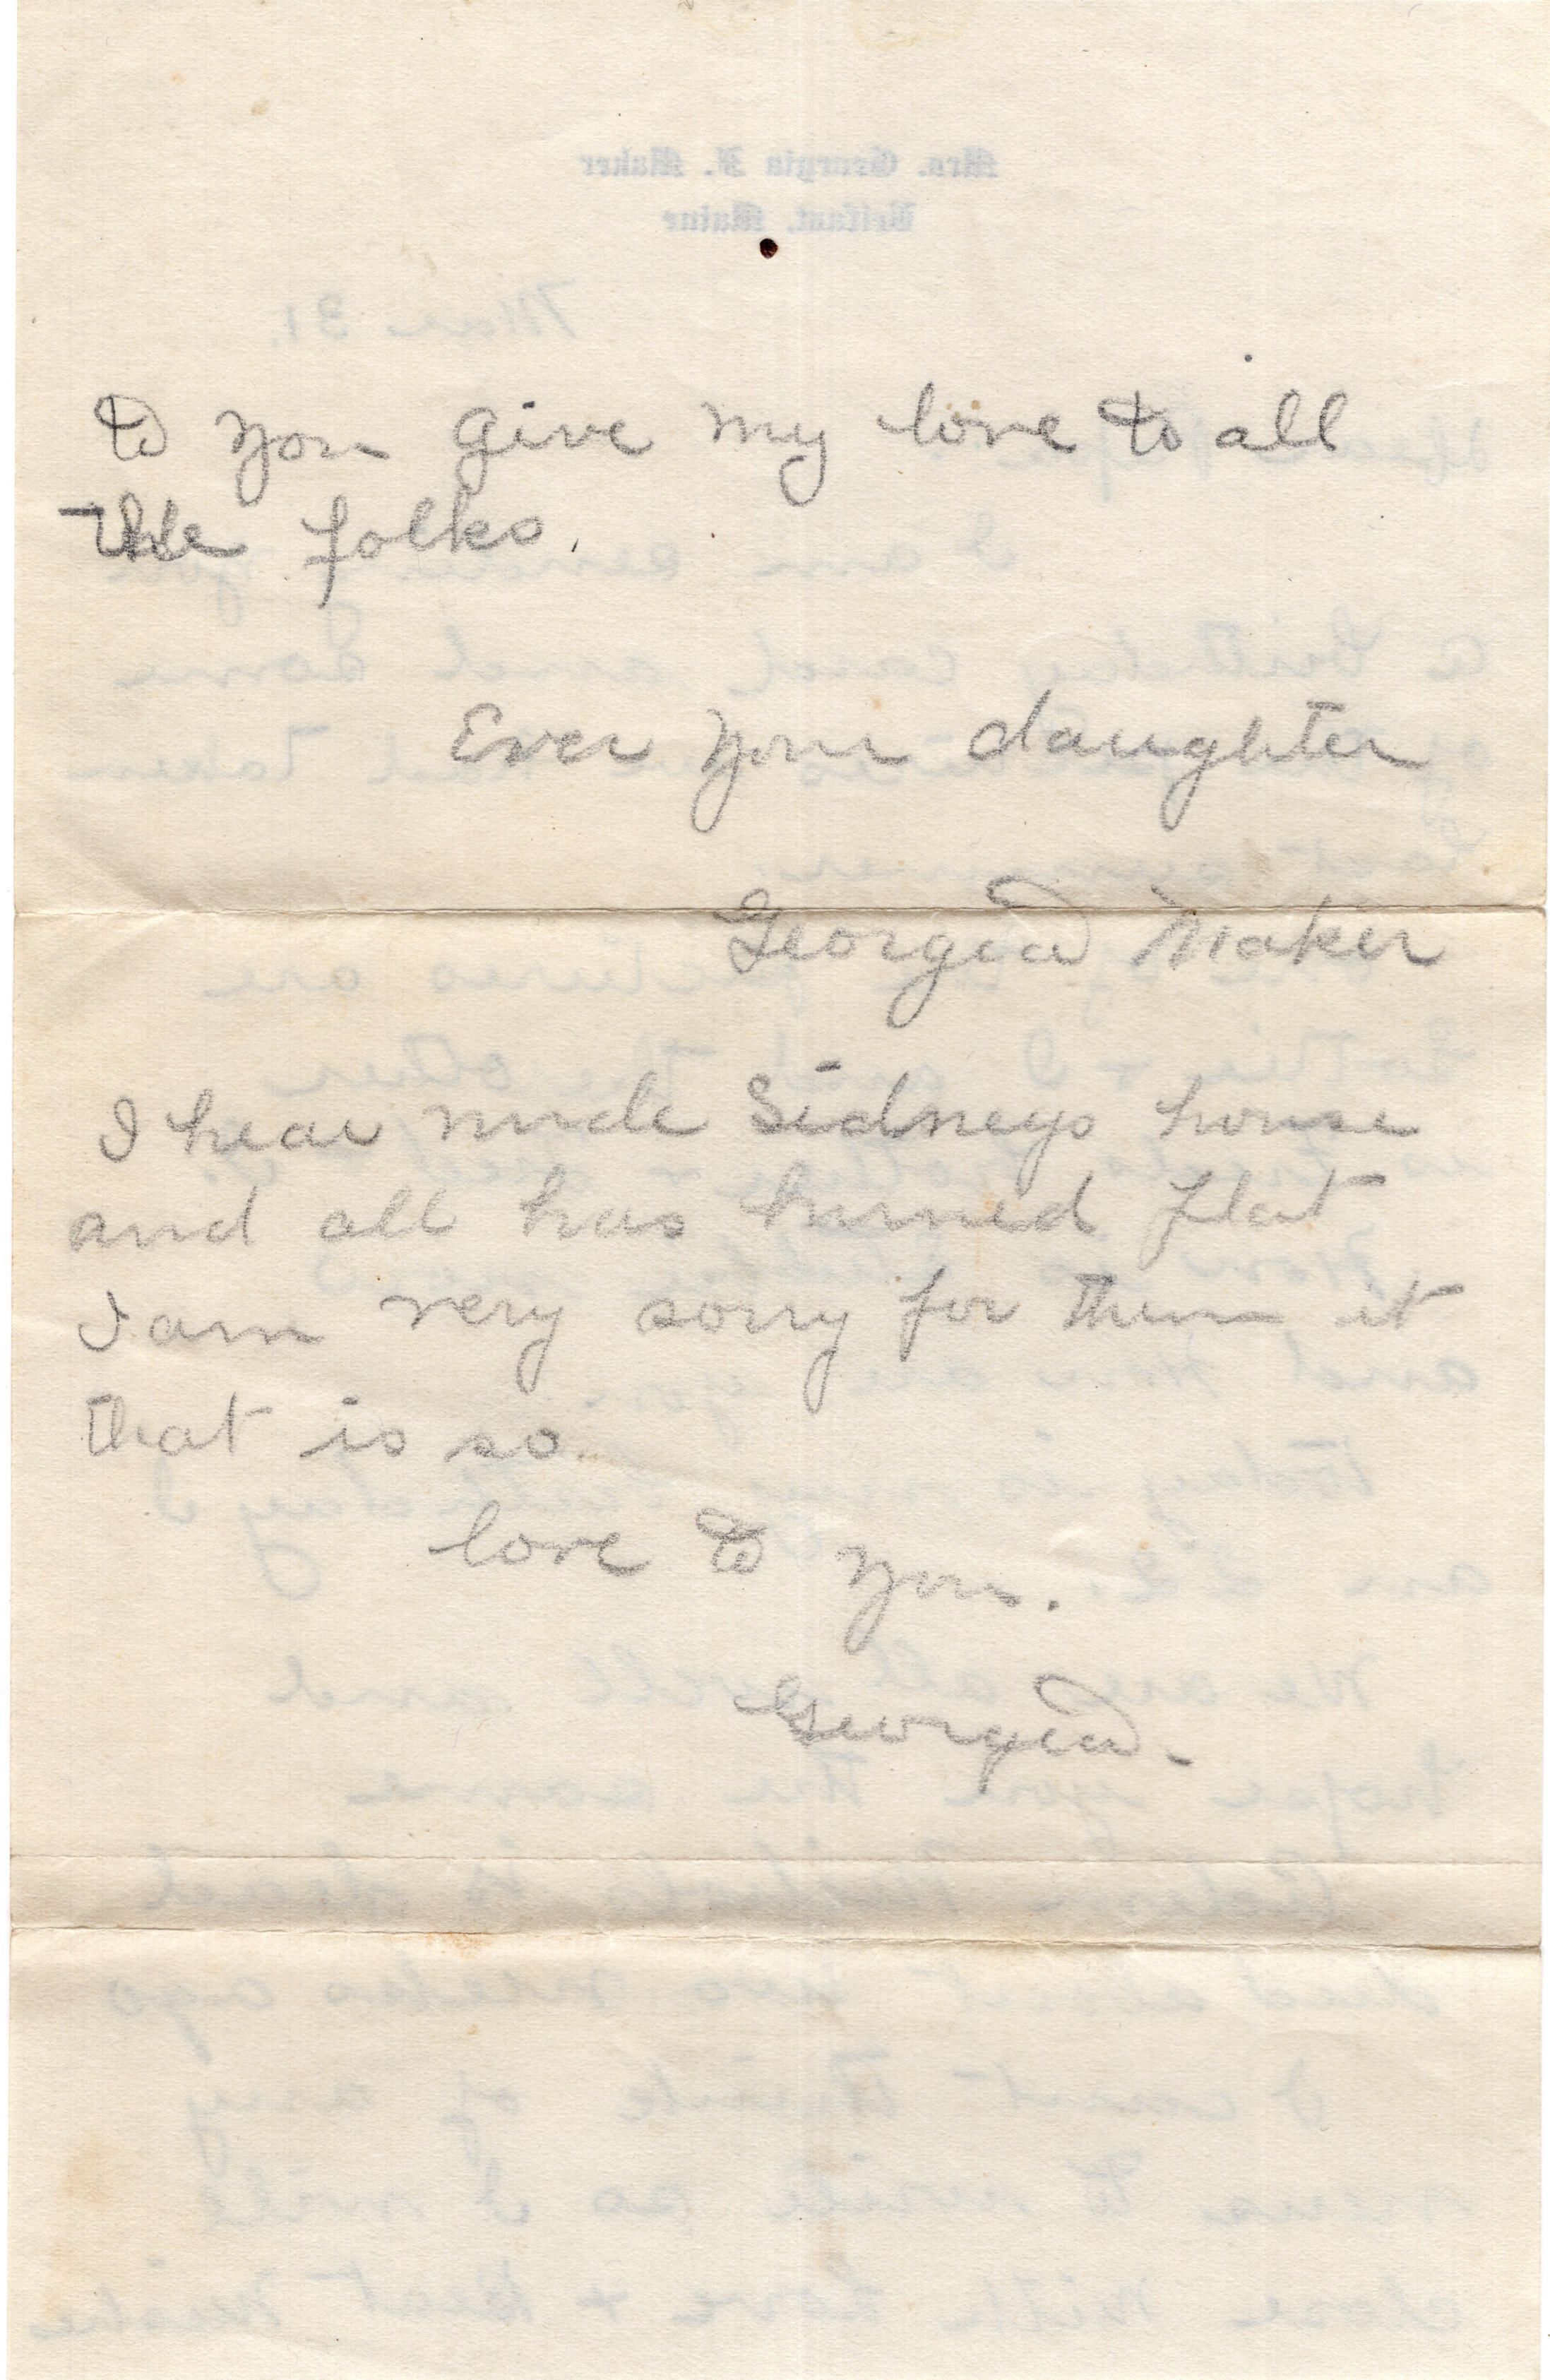 to you give my love to all
the folks.
Ever your daughter
Georgia Maker
I hear uncle Sidneys house
and all has burned flat
I am very sorry for them it
that is so.
love to you.
Georgia.